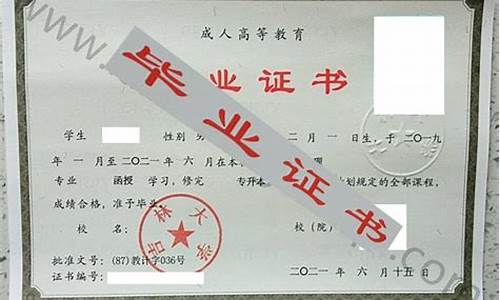 成人高等教育
毕业证书
毕业证书
学生 性别 男 二月一日生，于二〇一九
年一月至二〇二一年六月在本
专业 函授 学习，修完 专升本 划规定的全部课程，
成绩合格，准予毕业。
校名： 校（院）
吉林大学
批准文号：(87)教计字036号
证书编号：
二〇二一年六月十五日